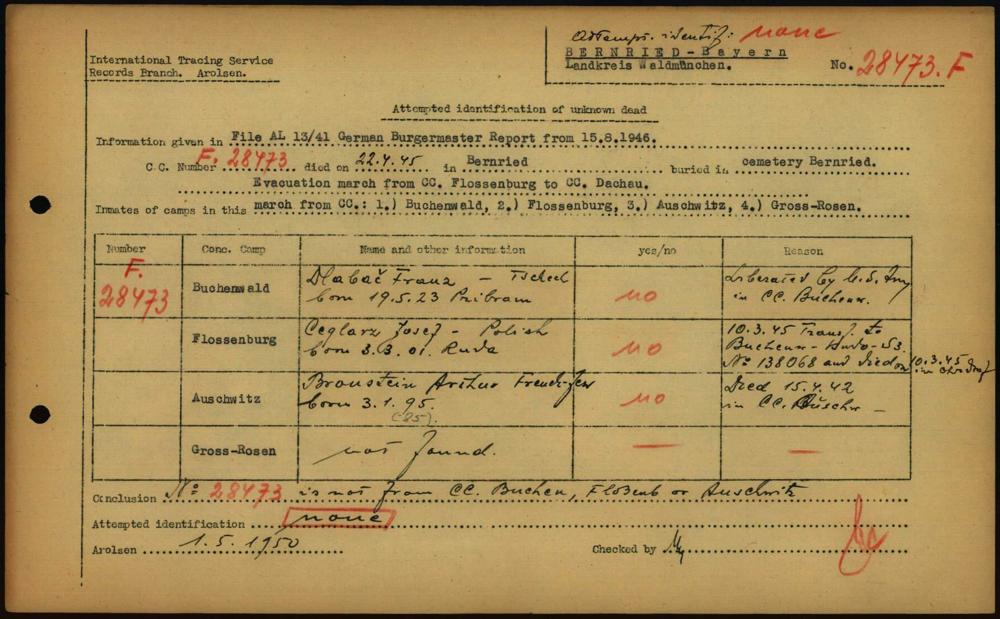 Attemps. identif: none
International Tracing Service
Records Branch. Arolsen.
BERNRIED-Bayern
Landkreis Waldmünchen.
No. 28473. F
Attempted identification of unknown dead
Information given in File AL 13/41 German Burgermaster Report from 15.8.1946.
C.C. Number F. 28473 died on 22.4.45 in Bernried buried in cemetery Bernried.
Evacuation march from CC. Flossenburg to CC. Dachau.
Inmates of camps in this march from CC.: 1.) Buchenwald, 2.) Flossenburg, 3.) Auschwitz, 4.) Gross-Rosen.
Number Conc. Camp Name and other information yes/no Reason
F. 28473
Buchenwald Dlabač Franz - Tschech no Liberated by U.S. Army
born 19.5.23 Pribram in CC. Buchenw.
Flossenburg Ceglarz Josef - Polish no 10.3.45 Transf. to
born 3.3.01. Ruda Buchenw-
No 138068 and died on 10.3.45
Auschwitz Bronstein Arthur French-Jew no Died 15.4.42
born 3.1.95. in CC. Auschw -
(25).
Gross-Rosen not found. — —
Conclusion No: 28473 is not from CC. Buchen, Floßenb or Auschwitz
Attempted identification none
Arolsen 1.5.1950 Checked by